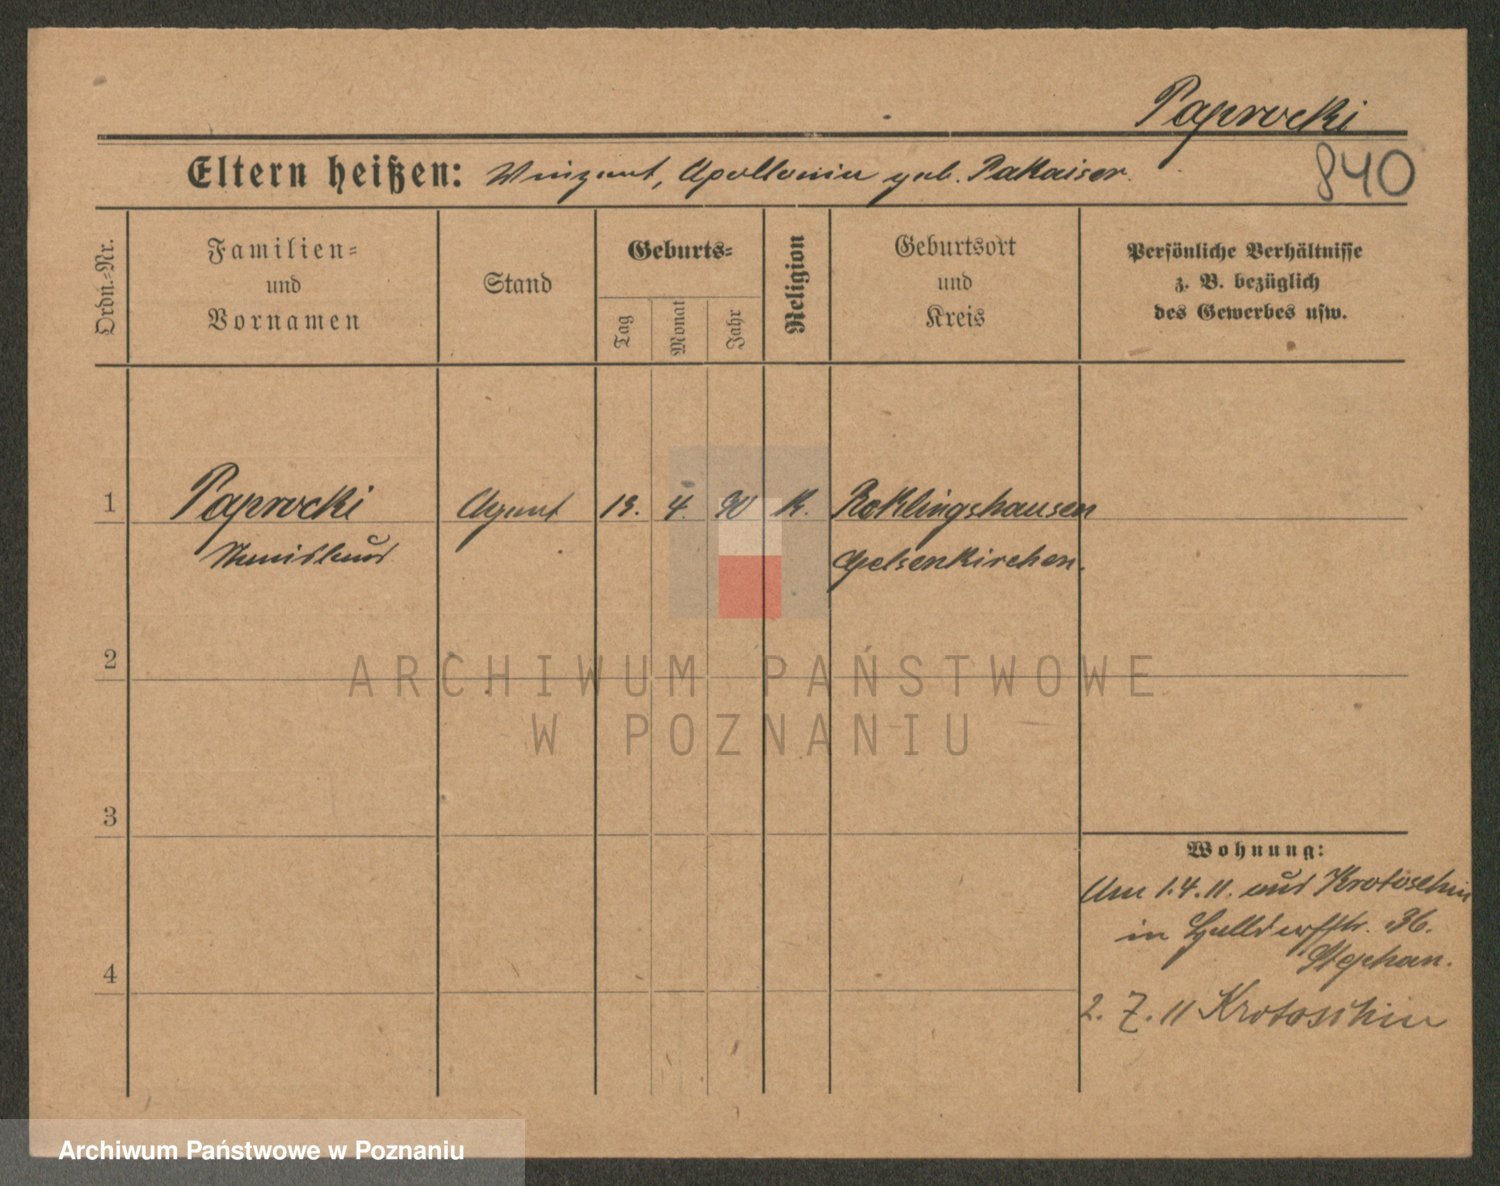 Paprocki
Eltern heißen: Vinzent, Apollonia geb. Pakaiser.
840
Ordn.-Nr.
Familien-
und
Vornamen
Stand
Geburts-
Tag
Monat
Jahr
Religion
Geburtsort
und
Kreis
Persönliche Verhältnisse
z. B. bezüglich
des Gewerbes usw.
1
Paprocki Agent 13. 4. 90 K. Roklingshausen
Gelsenkirchen.
2
ARCHIWUM PAŃSTWOWE
W POZNANIU
3
4
Wohnung:
Am 1.4.11. aus Krotoschin
in 36.
Stephan.
2. 7. 11 Krotoschin
Archiwum Państwowe w Poznaniu